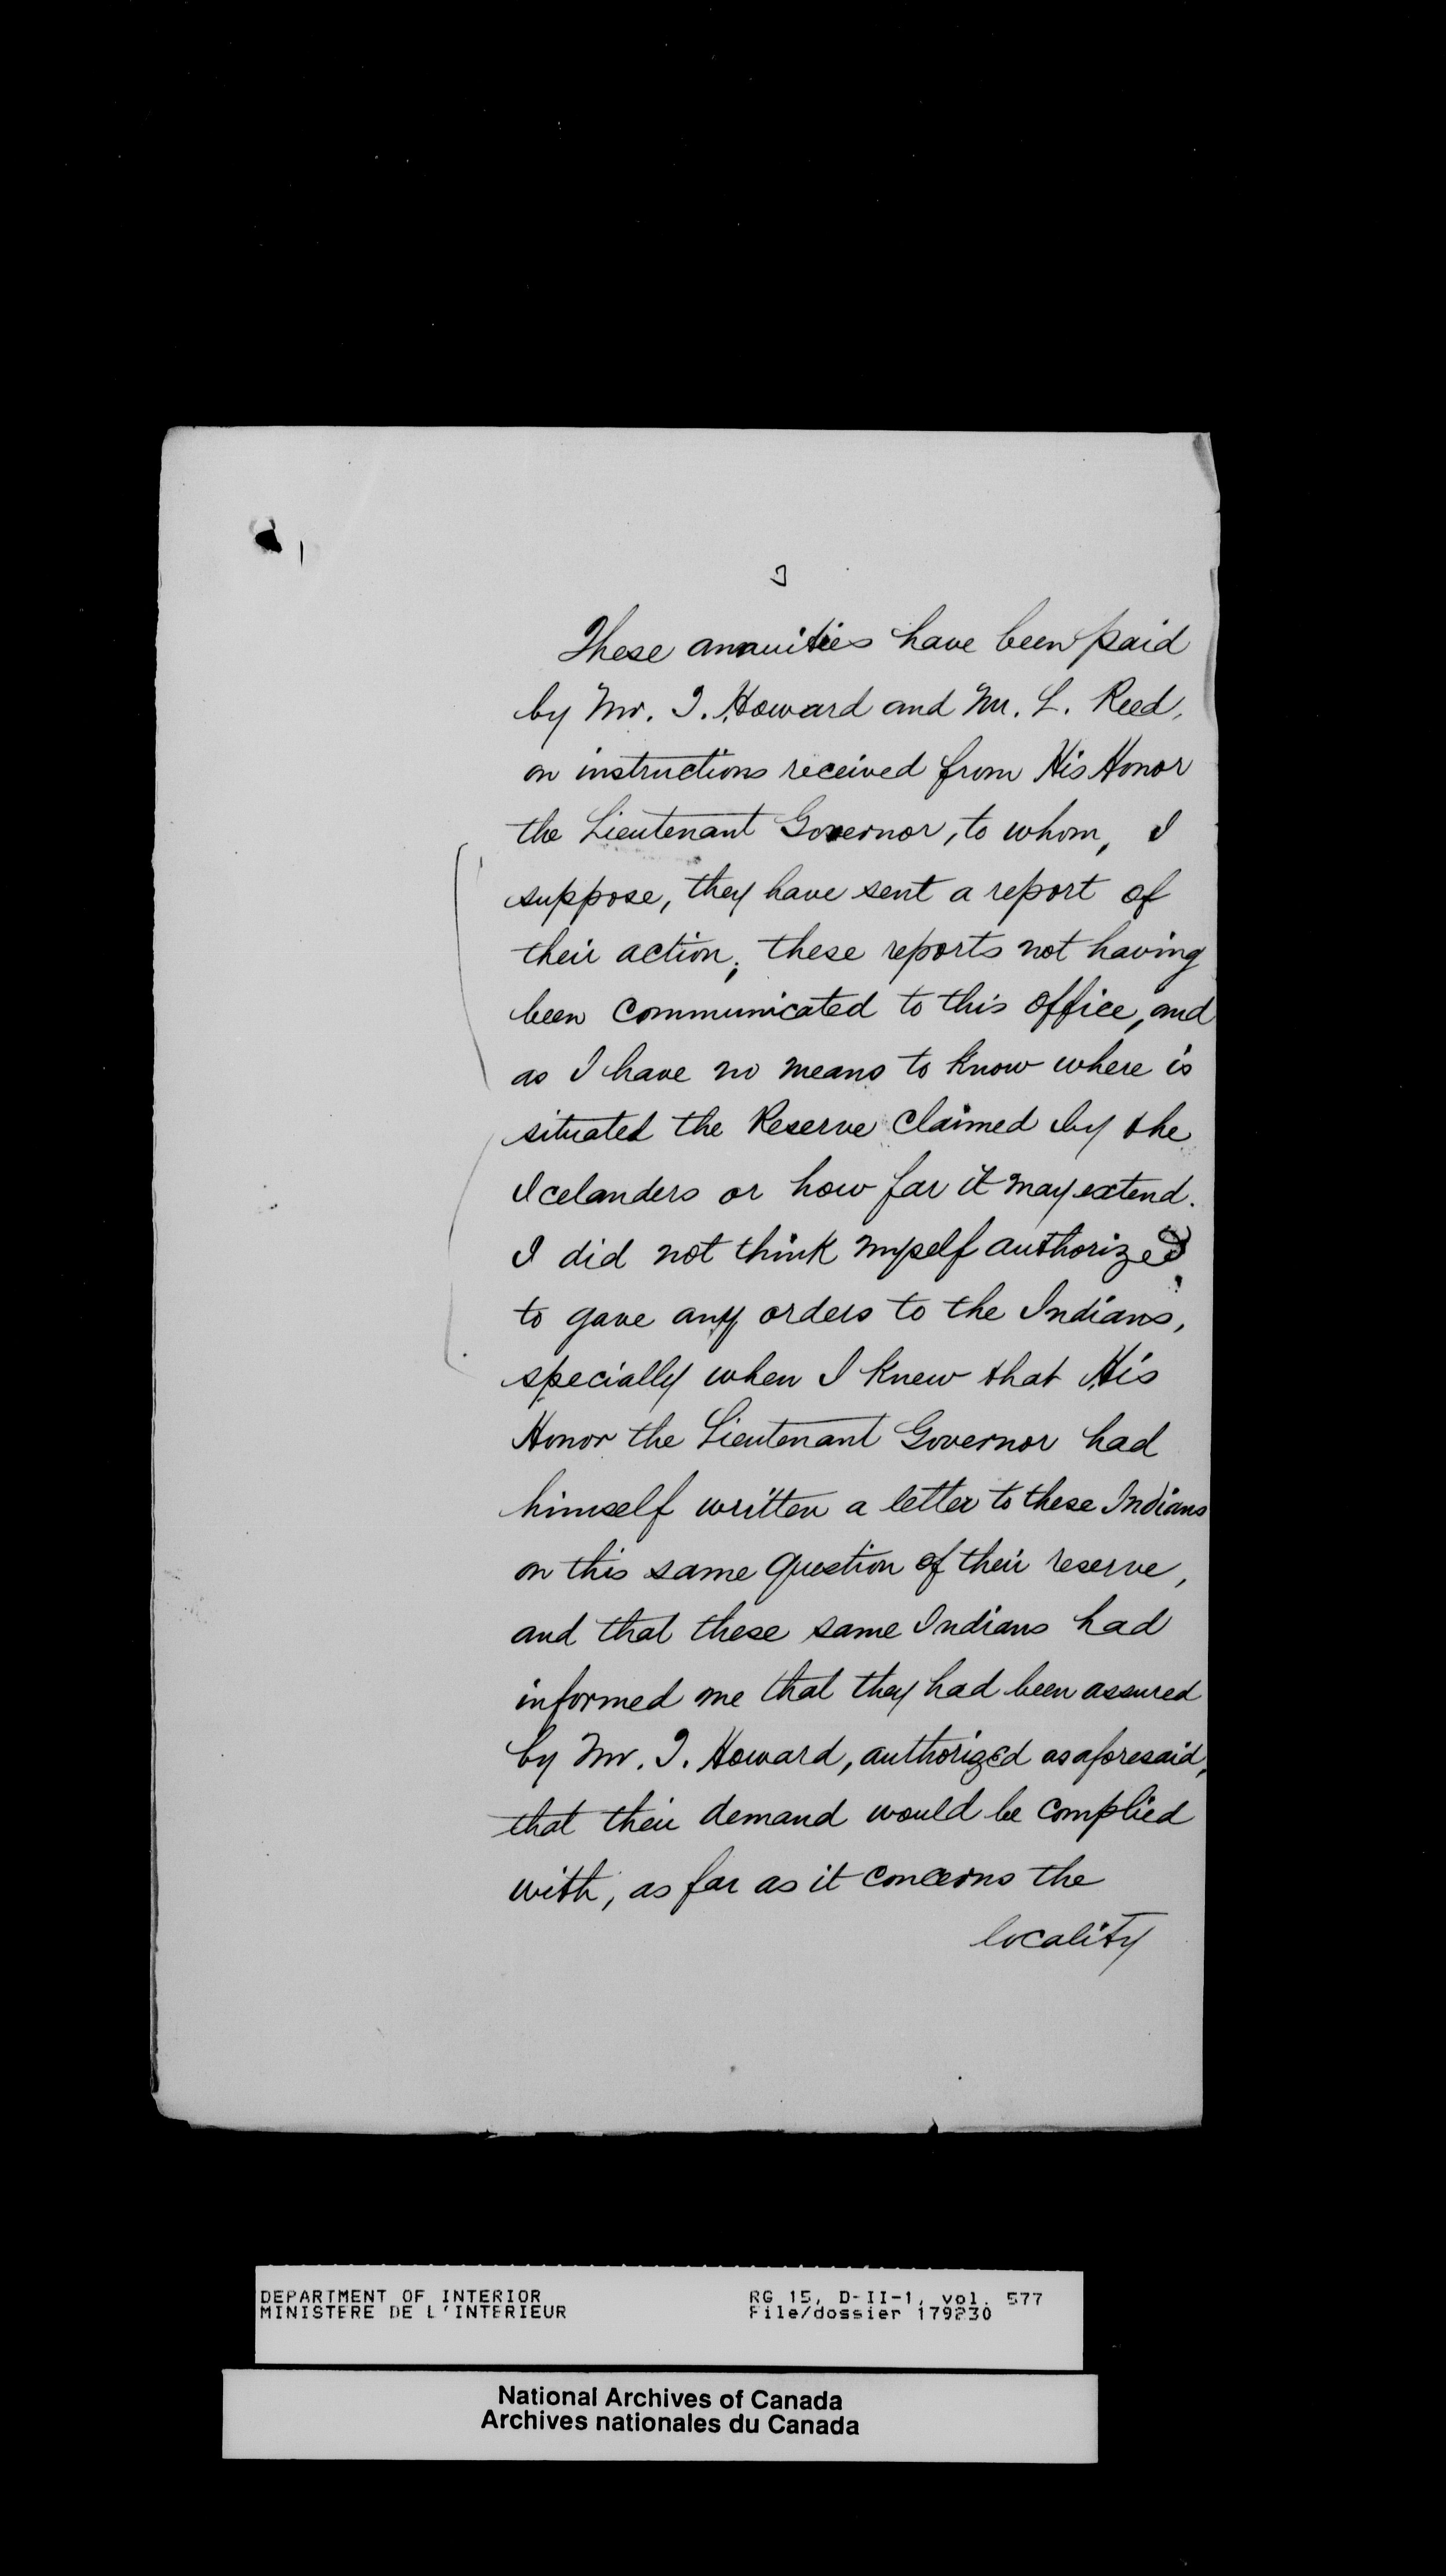 3
These annuities have been paid
by Mr. I. Howard and Mr. L. Reed,
on instructions received from His Honor
the Lieutenant Governor, to whom, I
suppose, they have sent a report of
their action; these reports not having
been communicated to this office, and
as I have no means to know where is
situated the Reserve claimed by the
Icelanders or how far it may extend.
I did not think myself authorized
to gave any orders to the Indians,
specially when I knew that His
Honor the Lieutenant Governor had
himself written a letter to these Indians
on this same question of their reserve,
and that these same Indians had
informed me that they had been assured
by Mr. I. Howard, authorized as aforesaid,
that their demand would be complied
with, as far as it concerns the
locality
DEPARTMENT OF INTERIOR RG 15, D-II-1, vol. 577
MINISTERE DE L'INTERIEUR File/dossier 179230
National Archives of Canada
Archives nationales du Canada